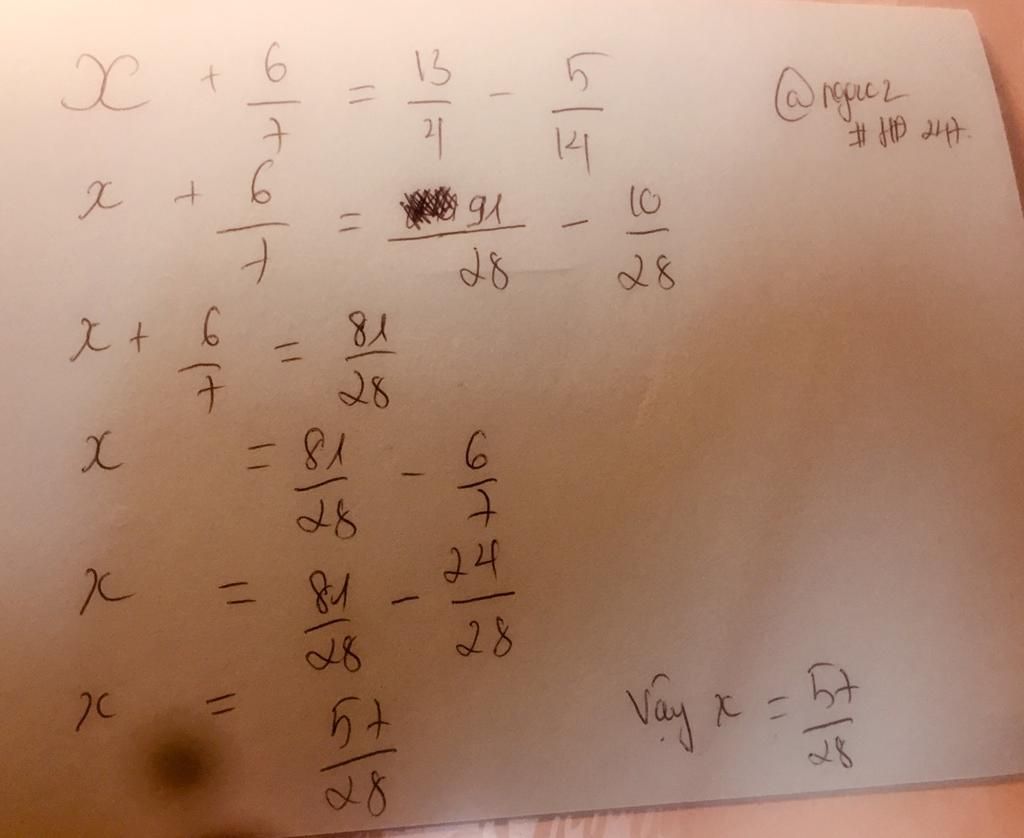 x + 6/7 = 13/4 - 5/14
x + 6/7 = 91/28 - 10/28
x + 6/7 = 81/28
x = 81/28 - 6/7
x = 81/28 - 24/28
x = 57/28
Vậy x = 57/28